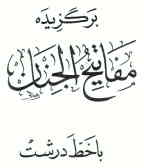 برگزیده
مفاتیح الجنان
با خط درشت